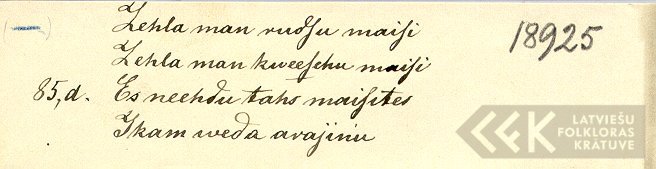 Zehla man rudsu maisi
18925
Zehla man kweeschu maisi
85,d. Es neehdu tahs maisites
Ikam weda arajinu
LATVIEŠU
FOLKLORAS
KRĀTUVE